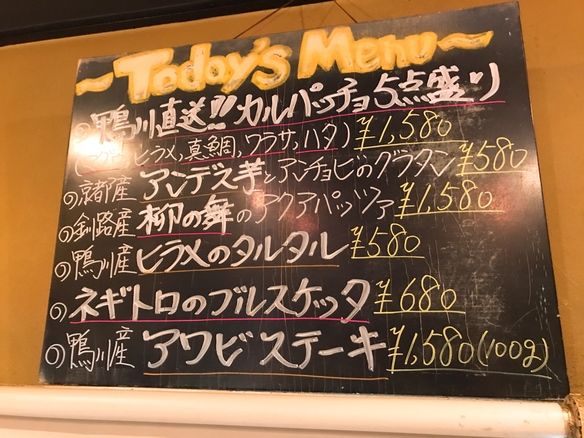 ～Today's Menu～
鴨川直送!! カルパッチョ5点盛り
ヒラメ,真鯛,ワラサ,ハタ) ¥1,580
京都産 アンデス芋とアンチョビのグラタン ¥580
釧路産 柳の舞のアクアパッツァ ¥1,580
鴨川産 ヒラメのタルタル ¥580
ネギトロのブルスケッタ ¥680
鴨川産 アワビステーキ ¥1,580(100g)